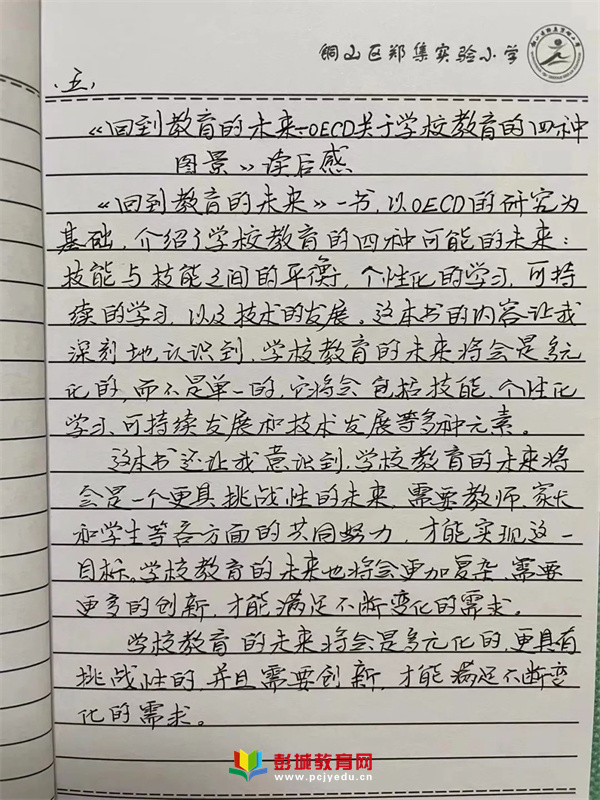 铜山区郑集实验小学
五,
《回到教育的未来—OECD关于学校教育的四种
图景》读后感
《回到教育的未来》一书,以OECD的研究为
基础,介绍了学校教育的四种可能的未来:
技能与技能之间的平衡,个性化的学习,可持
续的学习,以及技术的发展。这本书的内容让我
深刻地认识到,学校教育的未来将会是多元
化的,而不是单一的,它将会包括技能、个性化
学习、可持续发展和技术发展等多种元素。
这本书还让我意识到,学校教育的未来将
会是一个更具挑战性的未来,需要教师、家长
和学生等各方面的共同努力,才能实现这一
目标。学校教育的未来也将会更加复杂,需要
更多的创新,才能满足不断变化的需求。
学校教育的未来将会是多元化的,更具有
挑战性的,并且需要创新,才能满足不断变
化的需求。
彭城教育网
www.pcjyedu.cn